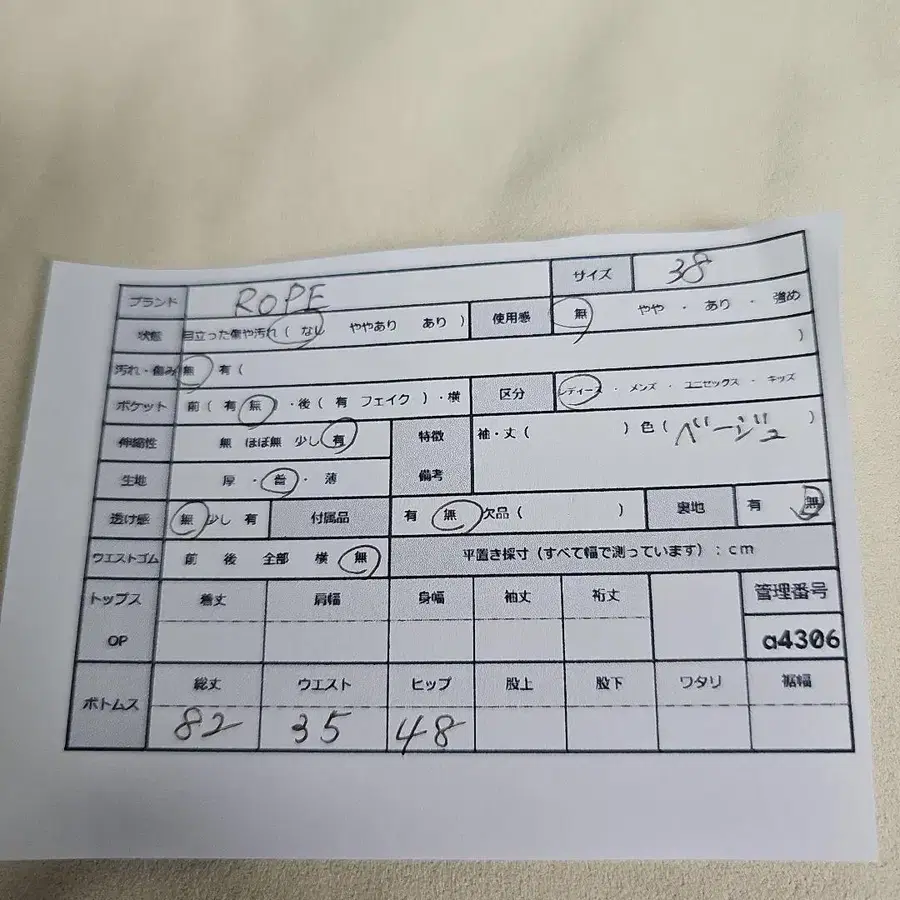 ブランド ROPE サイズ 38
状態 目立った傷や汚れ ( なし ややあり あり ) 使用感 無 やや ・ あり ・ 強め
汚れ・傷み 無 有 ( )
ポケット 前 ( 有 無 ) ・後 ( 有 フェイク ) ・横 区分 レディース ・ メンズ ・ ユニセックス ・ キッズ
伸縮性 無 ほぼ無 少し 有 特徴 袖・丈 ( ) 色 ( ベージュ )
生地 厚 ・ 普 ・ 薄 備考
透け感 無 少し 有 付属品 有 無 欠品 ( ) 裏地 有 無
ウエストゴム 前 後 全部 横 無 平置き採寸 (すべて幅で測っています) : cm
トップス 着丈 肩幅 身幅 袖丈 裄丈 管理番号
OP a4306
ボトムス 総丈 ウエスト ヒップ 股上 股下 ワタリ 裾幅
82 35 48